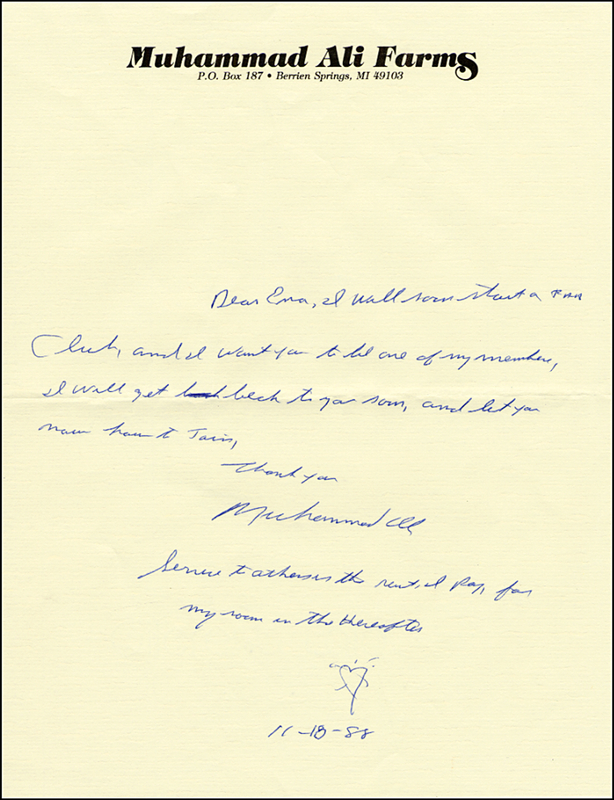 Muhammad Ali Farms
P.O. Box 187 • Berrien Springs, MI 49103
Dear Ena, I will soon start a Fan
Club, and I want you to be one of my members,
I will get back to you soon, and let you
now how to Join,
Thank you
Muhammad Ali
Service to others is the rent I pay, for
my room in the Hereafter
11-18-88